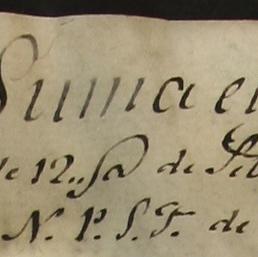 Suma e
de 12,, Sa de
N. P. S. F. de